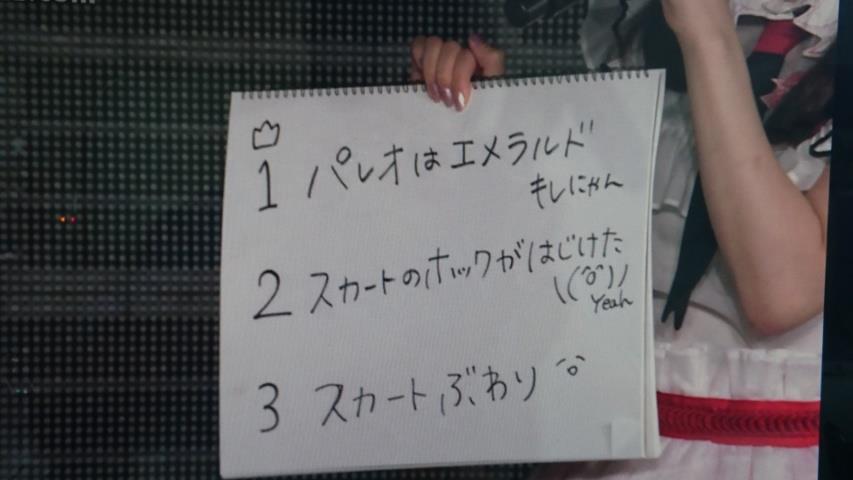 1 パレオはエメラルド
キレにゃん
2 スカートのホックがはじけた
\(^o^)/
Yeah
3 スカートぶわり ^o^